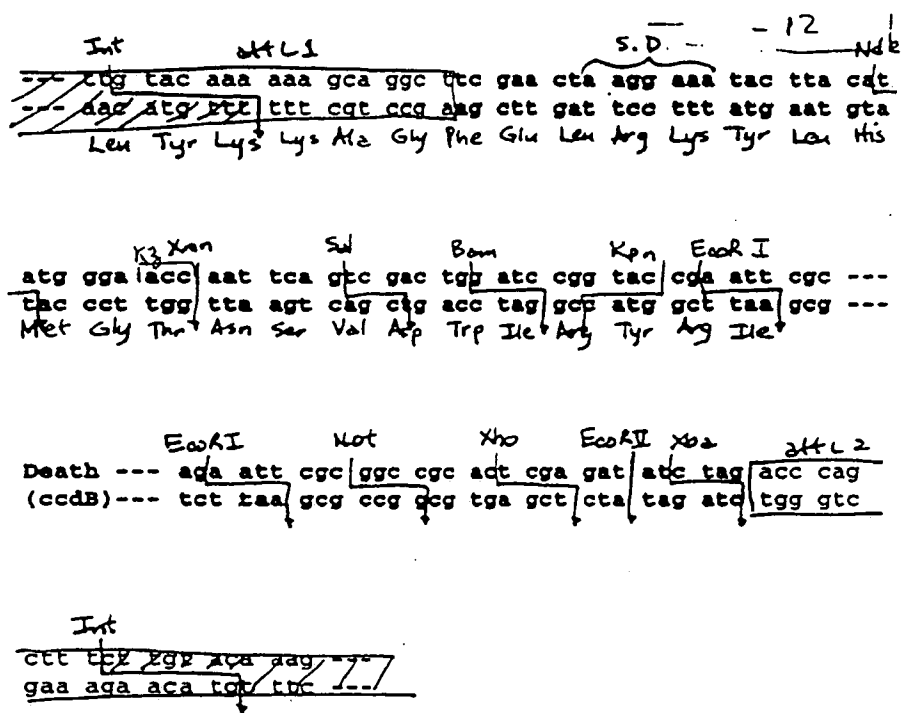 - 12
Int attL1 S.D. Nde
--- ttg tac aaa aaa gca ggc ttc gaa cta agg aaa tac tta cat
--- aac atg ttt ttt cgt ccg aag ctt gat tcc ttt atg aat gta
Leu Tyr Lys Lys Ala Gly Phe Glu Leu Arg Lys Tyr Leu His
Kz Xmn Sal Bam Kpn EcoR I
atg gga acc aat tca gtc gac tgg atc cgg tac cga att cgc ---
tac cct tgg tta agt cag ctg acc tag gcc atg gct taa gcg ---
Met Gly Thr Asn Ser Val Asp Trp Ile Arg Tyr Arg Ile
EcoRI Not Xho EcoRV Xba attL2
Death --- aga att cgc ggc cgc act cga gat atc tag acc cag
(ccdB)--- tct taa gcg ccg gcg tga gct cta tag atc tgg gtc
Int
ctt tct tgt aca aag ---
gaa aga aca tgt ttc ---